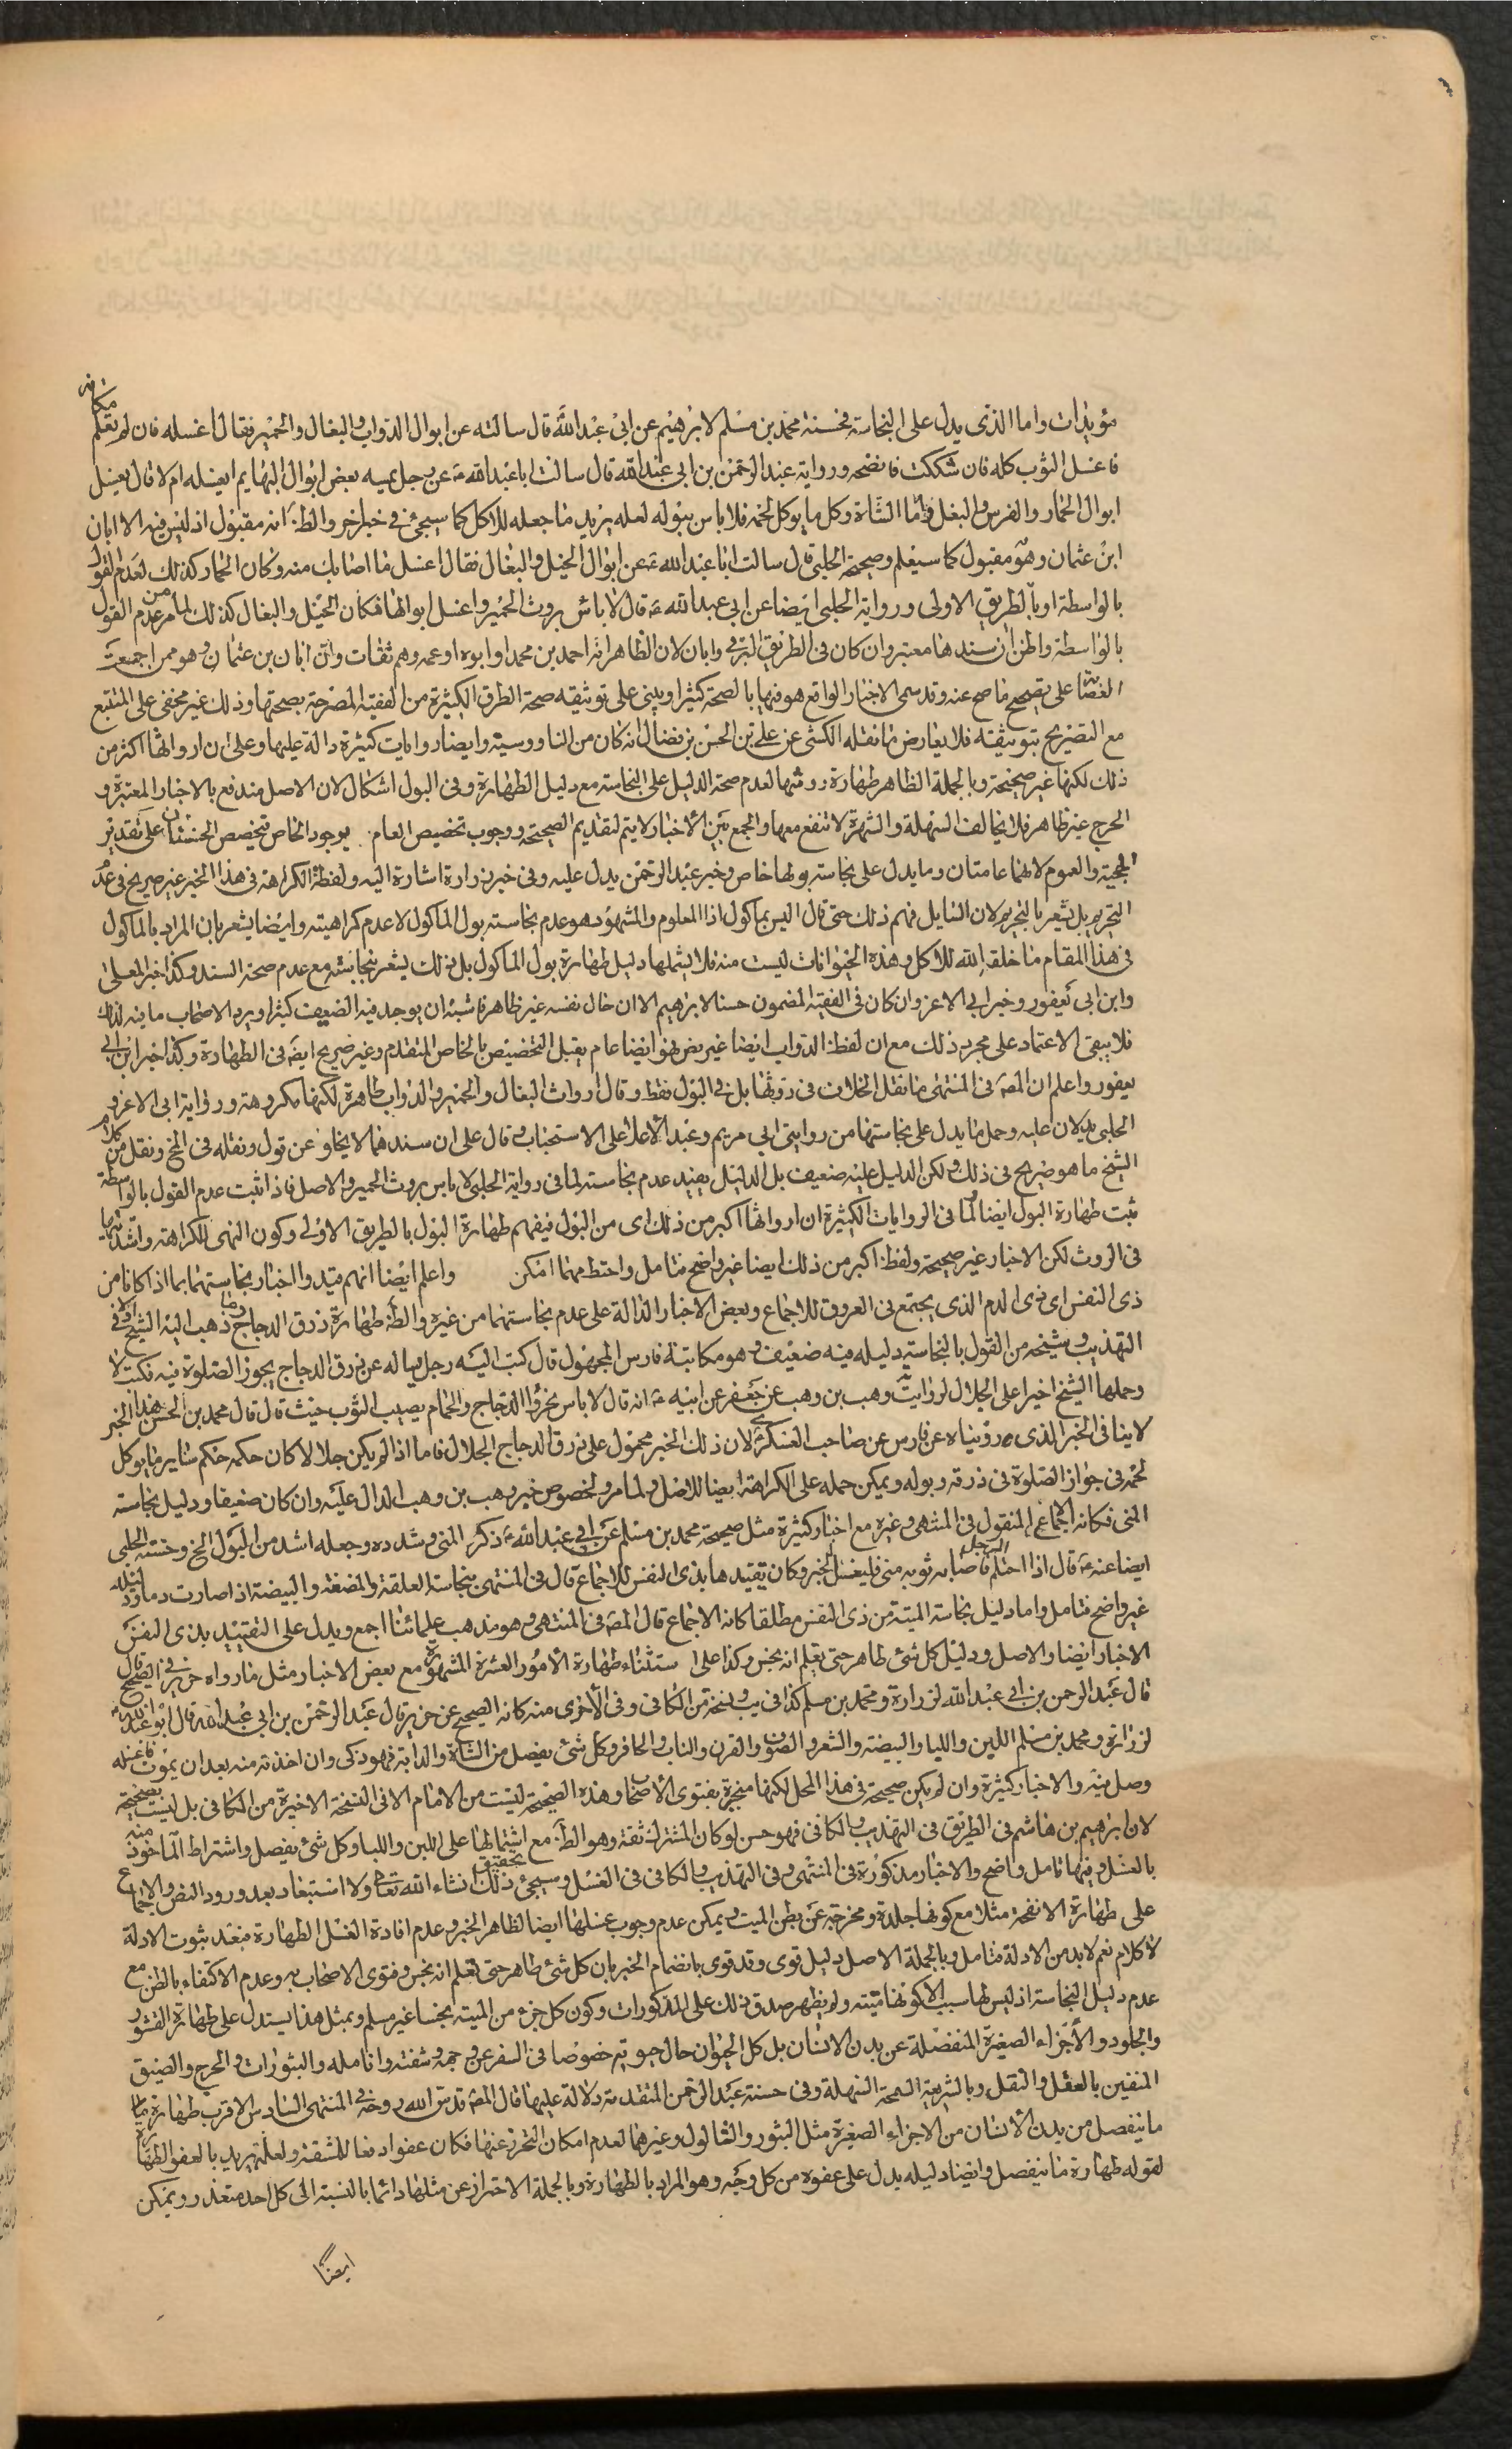 مؤيدات واما الذى يدل على النجاسة فحسنة محمد بن مسلم لابرهيم عن ابى عبد الله قال سالته عن ابوال الدواب والبغال والحمير فقال اغسله فان لم تعلم مكانه
فاغسل الثوب كله فان شككت فانضحه ورواية عبد الرحمن بن ابى عبد الله قال سالت ابا عبد الله ع عن رجل يمسه بعض ابوال البهايم ايغسله ام لا قال يغسل
ابوال الحمار والفرس والبغل فاما الشاة وكل ما يوكل لحمه فلا باس ببوله لعله يريد ما جعله للاكل كما سيجئ فى خبر اخر والظ انه مقبول اذ ليس فيه الا ابان
ابن عثمان وهو مقبول كما سيعلم وصحيحة الحلبى قال سالت ابا عبد الله ع عن ابوال الخيل والبغال فقال اغسل ما اصابك منه وكان الحمار كذلك لعدم القول
بالواسطة او بالطريق الاولى ورواية الحلبى ايضا عن ابى عبد الله ع قال لا باس بروث الحمير واغسل ابوالها فكان الخيل والبغال كذلك لما مر من عدم القول
بالواسطة والظن ان سندها معتبر وان كان فى الطريق البرقى وابان لان الظاهر انه احمد بن محمد او ابوه او عمه وهم ثقات وان ابان بن عثمان وهو ممن اجمعت
العصابة على تصحيح ما صح عنه وقد سمى الاخبار الواقع هو فيها بالصحة كثيرا ويبنى على توثيقه صحة الطرق الكثيرة من الفقيه المصرحة بصحتها وذلك غير مخفى على المتتبع
مع التصريح بتوثيقه فلا يعارض ما نقله الكشى عن على بن الحسن بن فضال انه كان من الناووسية وايضا روايات كثيرة دالة عليها وعلى ان ارواثها اكثر من
ذلك لكنها غير صحيحة وبالجملة الظاهر طهارة روثها لعدم صحة الدليل على النجاسة مع دليل الطهارة وفى البول اشكال لان الاصل مندفع بالاخبار المعتبرة و
الحرج غير ظاهر فلا يخالف السهلة والشهرة لا تنفع معها والجمع بين الاخبار لا يتم لتقديم الصحيحة ووجوب تخصيص العام بوجود الخاص فتخصص الحسنتان على تقدير
الحجية والعموم لانهما عامتان وما يدل على نجاسة بولها خاص وخبر عبد الرحمن يدل عليه وفى خبر زرارة اشارة اليه ولفظة الكراهة فى هذا الخبر غير صريح فى عدم
التحريم بل يشعر بالتحريم لان السايل فهم ذلك حتى قال اليس بماكول اذ المعلوم والمشهود هو عدم نجاسة بول الماكول لا عدم كراهيته وايضا يشعر بان المراد بالماكول
فى هذا المقام ما خلقه الله للاكل وهذه الحيوانات ليست منه فلا يشملها دليل طهارة بول الماكول بل ذلك يشعر بنجاسته مع عدم صحة السند وكذا خبر المعلى
وابن ابى يعفور وخبر ابى الاعز وان كان فى الفقيه المضمون حسنا لابرهيم الا ان حال نفسه غير ظاهر فاشبه ان يوجد فيه الضعيف كثيرا ويرد الاصحاب ما فيه لذلك
فلا يبقى الاعتماد على مجرد ذلك مع ان لفظ الدواب ايضا غير ‌صريح فهو ايضا عام يقبل التخصيص بالخاص المتقدم وغير صريح ايضه فى الطهارة وكذا خبر ابن ابى
يعفور واعلم ان المصة فى المنتهى ما نقل الخلاف فى روثها بل فى البول فقط وقال ارواث البغال والحمير والدواب طاهرة لكنها مكروهة ورواية ابى الاعز و
الحلبى يدلان عليه وحمل ما يدل على نجاستها من روايتى ابى مريم وعبد الاعلى على الاستحباب وقال على ان سندهما لا يخلو عن قول ونقله فى المخ ونقل من كلام
الشيخ ما هو صريح فى ذلك ولكن الدليل عليه ضعيف بل الدليل يفيد عدم نجاسته لما فى رواية الحلبى لا باس بروث الحمير والاصل فاذا ثبت عدم القول بالواسطة
ثبت طهارة البول ايضا ولما فى الروايات الكثيرة ان ارواثها اكبر من ذلك اى من البول فيفهم طهارة البول بالطريق الاولى وكون النهى للكراهة واشديتها
فى الروث لكن الاخبار غير صحيحة ولفظ اكبر من ذلك ايضا غير واضح فتامل واحتط مهما امكن واعلم ايضا انهم قيدوا اخبار نجاستهما بما اذا كانا من
ذى النفس اى ذى الدم الذى يجتمع فى العروق للاجماع وبعض الاخبار الدالة على عدم نجاستهما من غيره والظ طهارة ذرق الدجاج وما ذهب اليه الشيخ الا فى
التهذيب وشيخه من القول بالنجاسة دليله فيه ضعيف وهو مكاتبة فارس المجهول قال كتب اليه رجل يساله عن ذرق الدجاج يجوز الصلوة فيه فكتب لا
وحملها الشيخ اخيرا على الجلال لرواية وهب بن وهب عن جعفر عن ابيه ع انه قال لا باس بخرؤ الدجاج والحمام يصيب الثوب حيث قال قال محمد بن الحسن هذا الخبر
لا ينافى الخبر الذى رويناه عن فارس عن صاحب العسكر ع لان ذلك الخبر محمول على ذرق الدجاج الجلال فاما اذا لم يكن جلالا كان حكمه حكم ساير ما يوكل
لحمه فى جواز الصلوة فى ذرقه وبوله ويمكن حمله على الكراهة ايضا للاصل ولما مر ولخصوص خبر وهب بن وهب الدال عليه وان كان ضعيفا ودليل نجاسة
المنى فكانه الاجماع المنقول فى المنتهى وغيره مع اخبار كثيرة مثل صحيحة محمد بن مسلم عن ابى عبد الله ع ذكر المنى وشدده وجعله اشد من البول الخ وحسنة الحلبى
ايضا عنه ع قال اذا احتلم الرجل فاصاب ثوبه منى فليغسل الخبر وكان تقييدها بذى النفس للاجماع قال فى المنتهى بنجاسة العلقة والمضغة والبيضة اذا صارت دما ودليله
غير واضح فتامل واما دليل نجاسة الميتة من ذى النفس مطلقا كانه الاجماع قال المصة فى المنتهى وهو مذهب علمائنا اجمع ويدل على التقييد بذى النفس
الاخبار ايضا والاصل ودليل كل شئ طاهر حتى تعلم انه نجس وكذا على استثناء طهارة الامور العشرة المشهورة مع بعض الاخبار مثل ما رواه حريز فى الصحيح قال
قال عبد الرحمن بن ابى عبد الله لزرارة ومحمد بن مسلم كذا فى يب ونسخة من الكافى وفى الاخرى منه كانه الصحيح عن حريز قال عبد الرحمن بن ابى عبد الله قال ابو عبد الله ع
لزرارة ومحمد بن مسلم اللبن واللباء والبيضة والشعر والصوف والقرن والناب والحافر وكل شئ يفصل من الشاة والدابة فهو ذكى وان اخذته منه بعد ان يموت فاغسله
وصل فيه والاخبار كثيرة وان لم يكن صحيحة فى هذا المحل لكنها منجبرة بفتوى الاصحاب وهذه الصحيحة ليست من الامام الا فى النسخة الاخيرة من الكافى بل ليست بصحيحة
لان ابرهيم بن هاشم فى الطريق فى التهذيب والكافى فهو حسن لو كان المشترك ثقة وهو الظ مع اشتمالها على اللبن واللباء وكل شئ يفصل واشتراط الماخوذ منه
بالغسل وفيها تامل واضح والاخبار مذكورة فى المنتهى وفى التهذيب والكافى فى الغسل وسيجئ تحقيق ذلك انشاء الله تعالى ولا استبعاد بعد ورود النص والاجماع
على طهارة الانفحة مثلا مع كونها جلدة ومخرجة عن بطن الميت ويمكن عدم وجوب غسلها ايضا لظاهر الخبر وعدم افادة الغسل الطهارة فبعد ثبوت الادلة
لا كلام نعم لا بد من الادلة فتامل وبالجملة الاصل دليل قوى وقد قوى بانضمام الخبر بان كل شئ طاهر حتى تعلم انه نجس وفتوى الاصحاب به وعدم الاكتفاء بالظن مع
عدم دليل النجاسة اذ ليس لها سبب الا كونها ميتة ولم يظهر صدق ذلك على المذكورات وكون كل جزء من الميتة نجسا غير مسلم وبمثل هذا يستدل على طهارة القشور
والجلود والاجزاء الصغيرة المنفصلة عن بدن الانسان بل كل الحيوان حال حيوته خصوصا فى السفر عن وجهه وشفته وانامله والبثورات والحرج والضيق
المنفيين بالعقل والنقل وبالشريعة السمحة السهلة وفى حسنة عبد الرحمن المتقدمة دلالة عليها قال المصة قدس الله روحه فى المنتهى السادس الاقرب طهارة
ما ينفصل من بدن الانسان من الاجزاء الصغيرة مثل البثور والثالول وغيرهما لعدم امكان التحرز عنها فكان عفوا دفعا للمشقة ولعله يريد بالعفو الطهارة
لقوله طهارة ما ينفصل وايضا دليله يدل على عفوه من كل وجه وهو المراد بالطهارة وبالجملة الاحتراز عن مثلها دائما بالنسبة الى كل احد متعذر ويمكن
ايضا